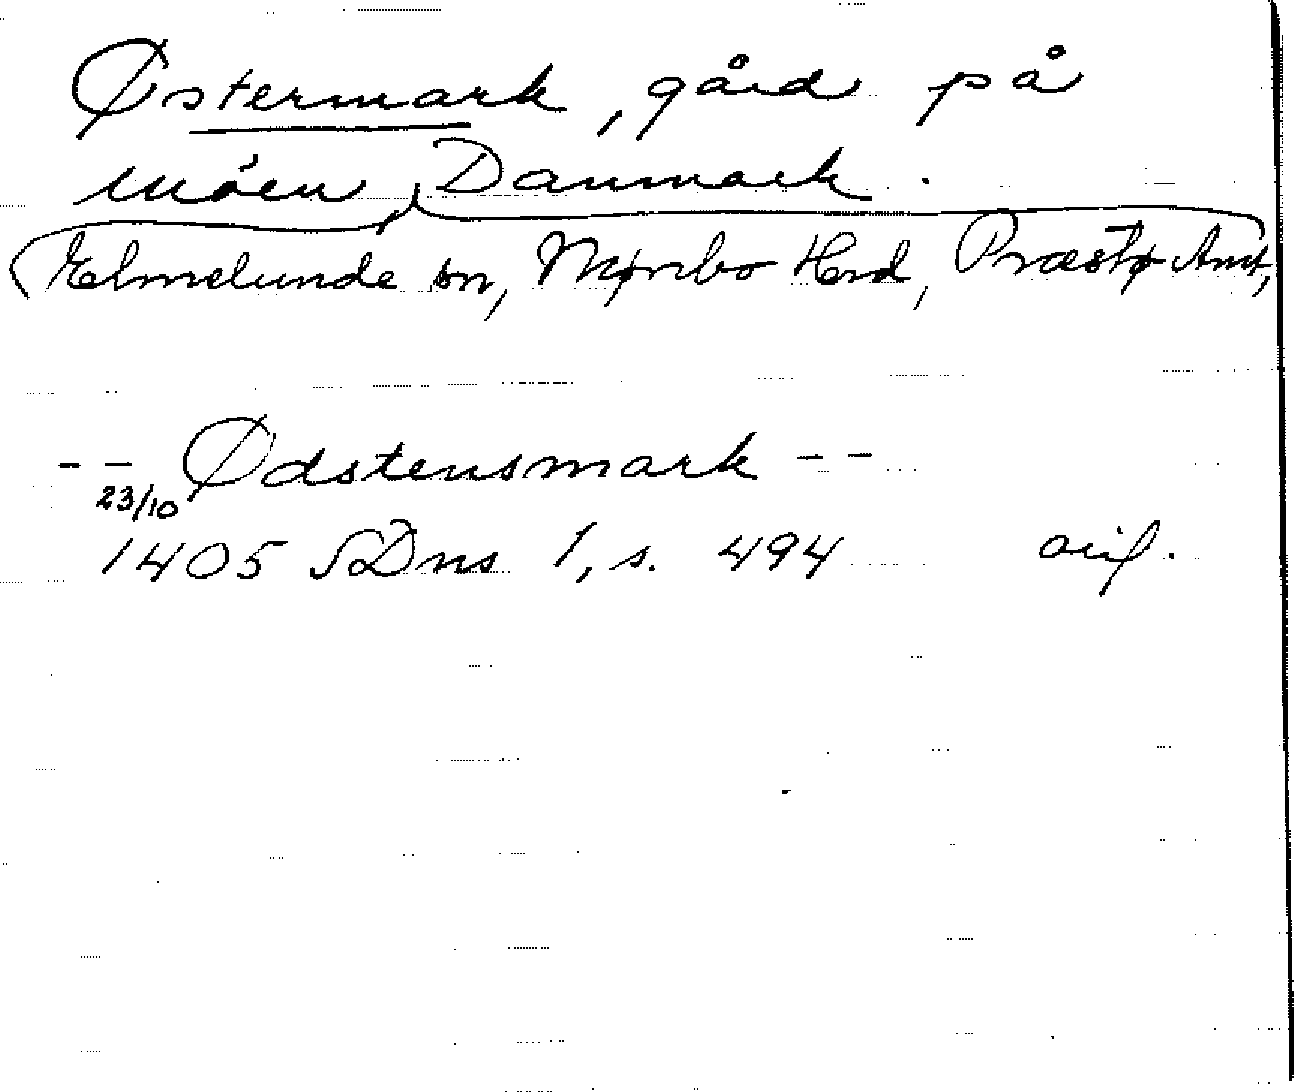 Østermark, gård på
Möen, Danmark.
Elmelunde sn, Mønbo Hrd, Præstø Amt,
-- Ødstensmark --
23/10
1405 SDns 1, s. 494 orig.